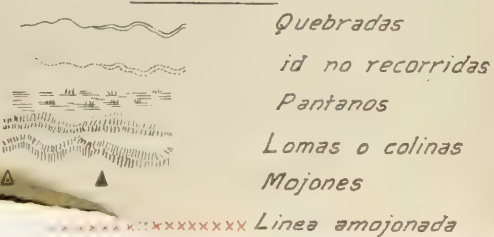 Quebradas
id no recorridas
Pantanos
Lomas o colinas
Mojones
Linea amojonada